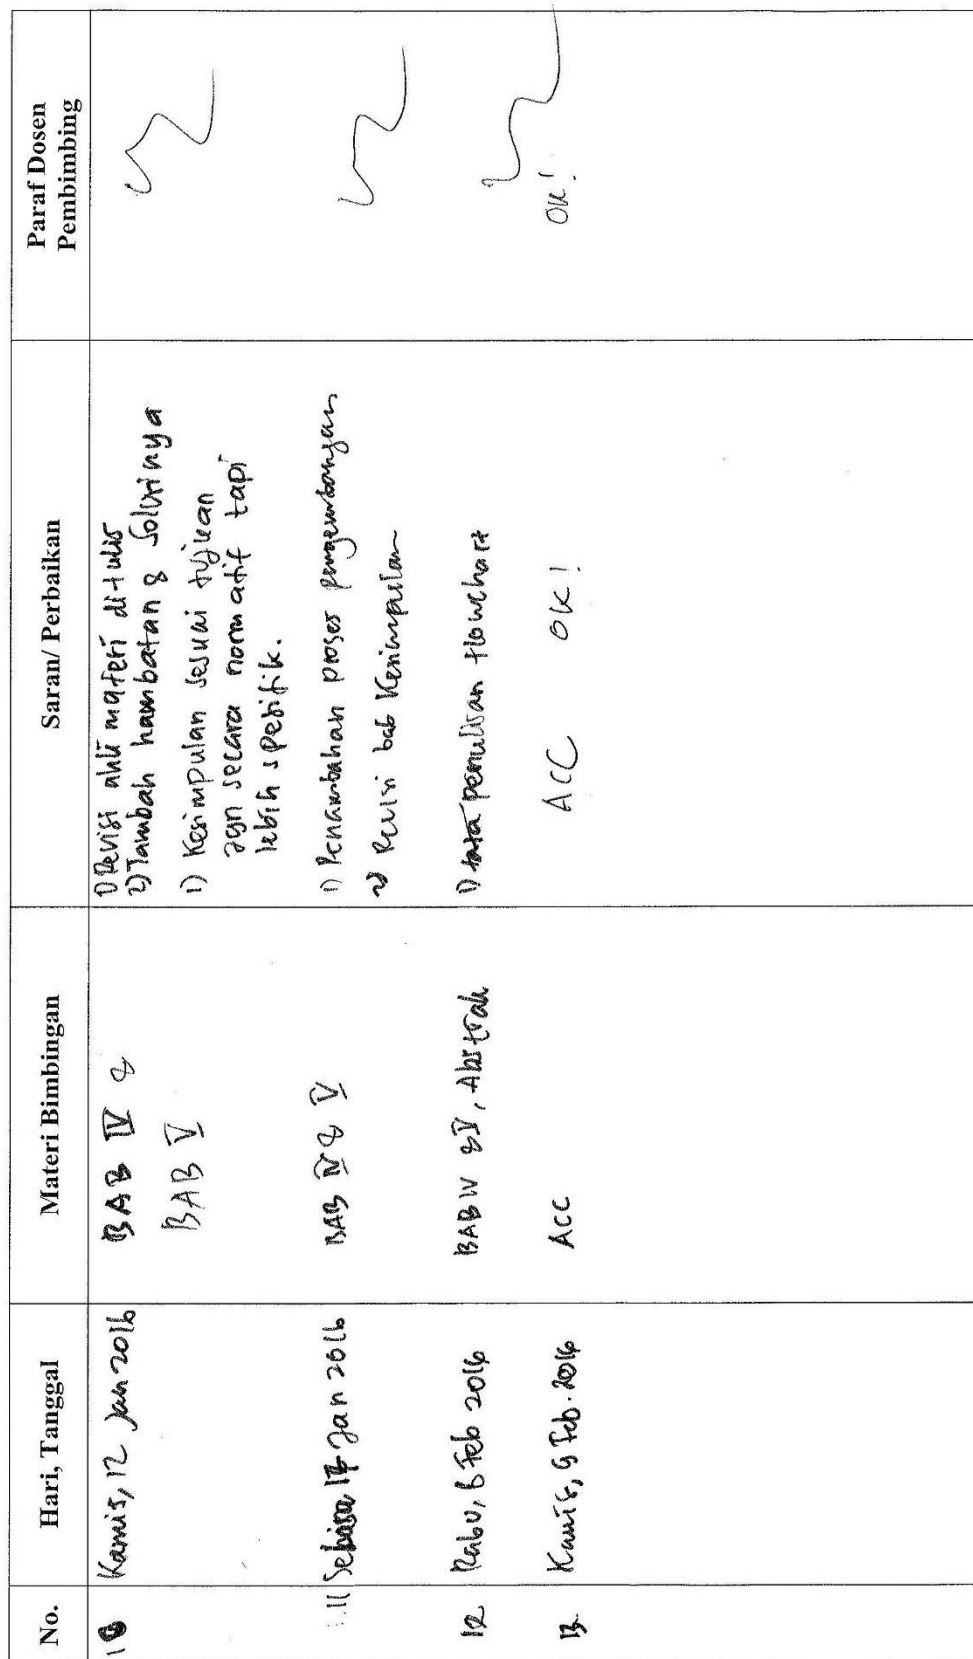 No.
Hari, Tanggal
Materi Bimbingan
Saran/ Perbaikan
Paraf Dosen
Pembimbing
10
Kamis, 12 Jan 2016
BAB IV &
BAB V
1) Revisi ahli materi ditulis
2) Tambah hambatan & solusinya
1) Kesimpulan sesuai tujuan
secara normatif tapi
lebih spesifik.
11
Jan 2016
BAB IV & V
1) Penambahan proses pengembangan
2) Revisi bab Kesimpulan
12
Rabu, 8 Feb 2016
BAB IV & V, Abstrak
1) penulisan flowchart
13
Kamis, 9 Feb. 2016
ACC
ACC OK!
OK!